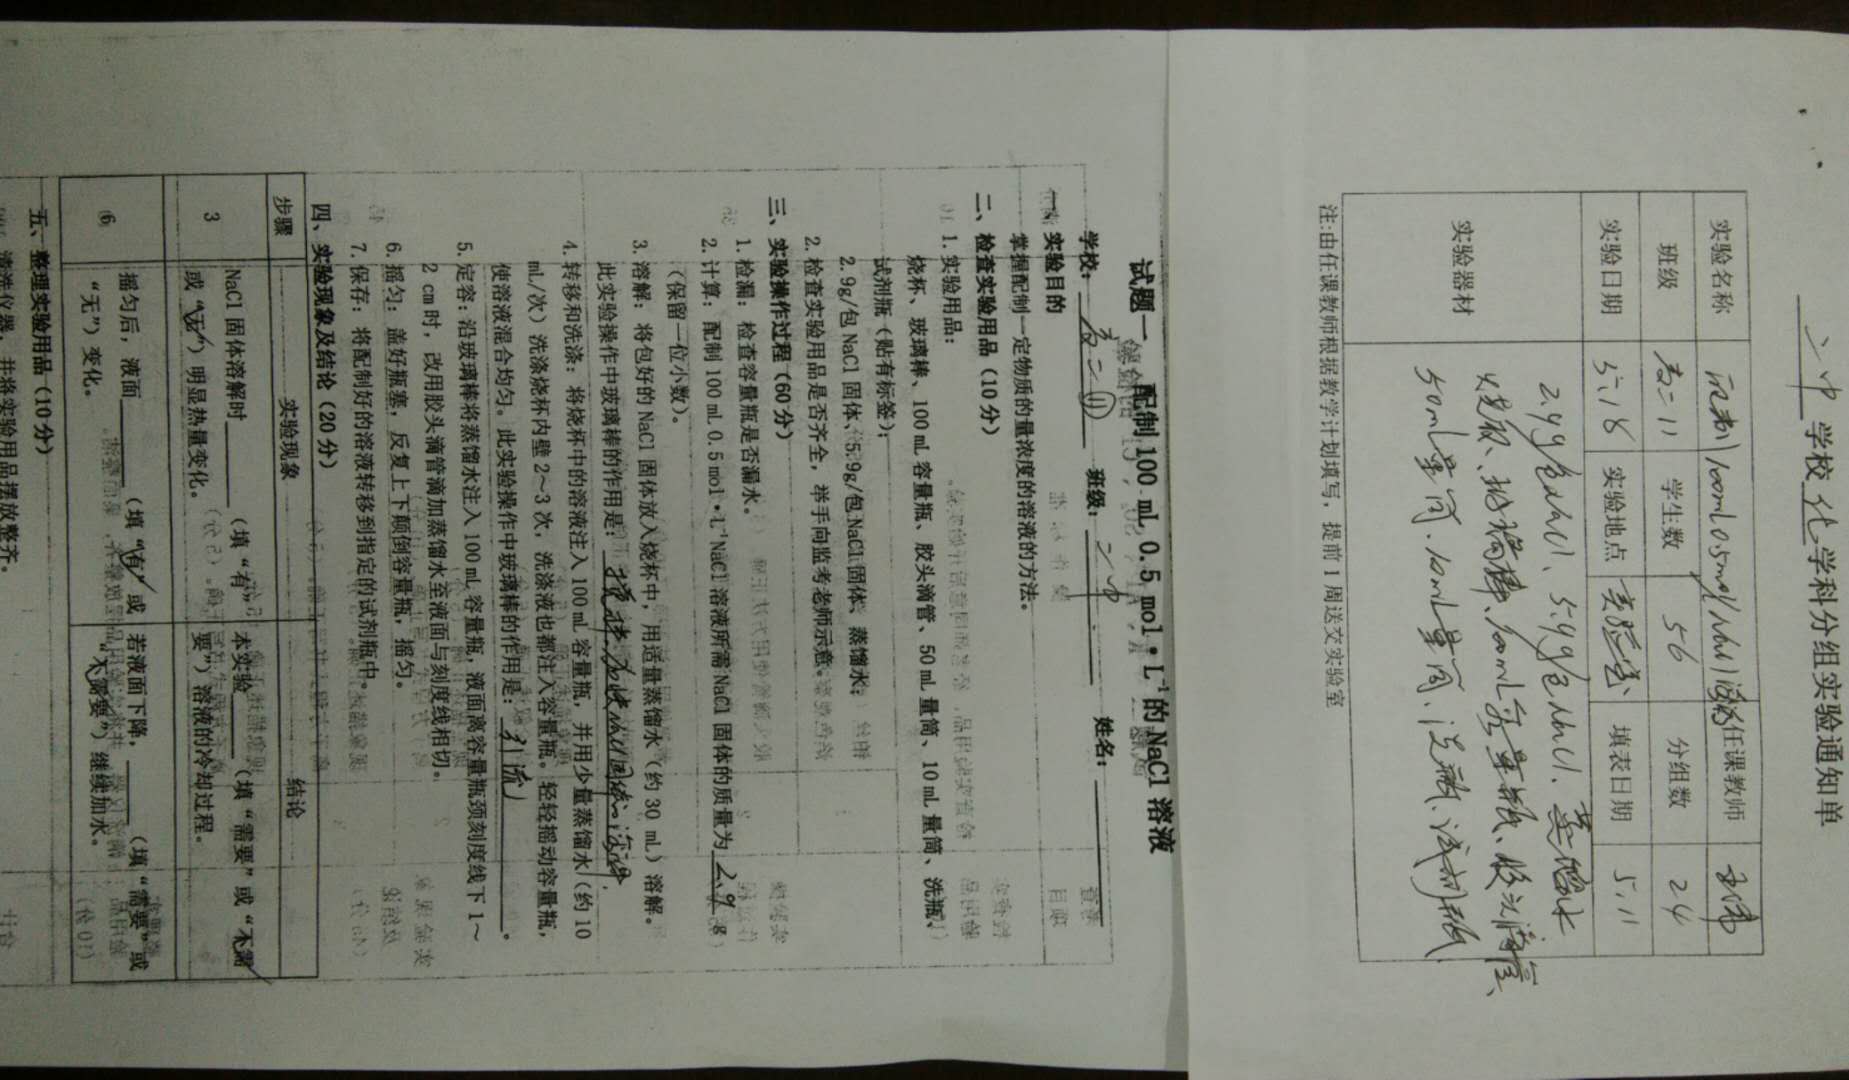 二中学校化学科分组实验通知单
实验名称 配制100mL0.5mol/LNaCl溶液 任课教师
班级 高二11 学生数 56 分组数 24
实验日期 5.18 实验地点 实验室 填表日期 5.11
实验器材 2.9g/包NaCl、5.9g/包NaCl、蒸馏水
烧杯、玻璃棒、100mL容量瓶、胶头滴管、
50mL量筒、10mL量筒、洗瓶、试剂瓶
注:由任课教师根据教学计划填写，提前1周送交实验室
试题一 配制 100 mL 0.5 mol·L⁻¹的 NaCl 溶液
学校： 高二⑪ 班级： 二中 姓名：
一、实验目的
掌握配制一定物质的量浓度的溶液的方法。
二、检查实验用品（10 分）
1. 实验用品：
烧杯、玻璃棒、100 mL 容量瓶、胶头滴管、50 mL 量筒、10 mL 量筒、洗瓶、
试剂瓶（贴有标签）；
2.9g/包 NaCl 固体、5.9g/包 NaCl 固体、蒸馏水；
2. 检查实验用品是否齐全，举手向监考老师示意。
三、实验操作过程（60 分）
1. 检漏：检查容量瓶是否漏水。
2. 计算：配制 100 mL 0.5 mol·L⁻¹NaCl 溶液所需 NaCl 固体的质量为 2.9 g
（保留一位小数）。
3. 溶解：将包好的 NaCl 固体放入烧杯中，用适量蒸馏水（约 30 mL）溶解。
此实验操作中玻璃棒的作用是：搅拌，加快NaCl固体的溶解。
4. 转移和洗涤：将烧杯中的溶液注入 100 mL 容量瓶，并用少量蒸馏水（约 10
mL/次）洗涤烧杯内壁 2～3 次，洗涤液也都注入容量瓶。轻轻摇动容量瓶，
使溶液混合均匀。此实验操作中玻璃棒的作用是：引流。
5. 定容：沿玻璃棒将蒸馏水注入 100 mL 容量瓶，液面离容量瓶颈刻度线下 1～
2 cm 时，改用胶头滴管滴加蒸馏水至液面与刻度线相切。
6. 摇匀：盖好瓶塞，反复上下颠倒容量瓶，摇匀。
7. 保存：将配制好的溶液转移到指定的试剂瓶中。
四、实验现象及结论（20 分）
步骤 实验现象 结论
3 NaCl 固体溶解时（填“有” 本实验（填“需要”或“不需
或“无”）明显热量变化。 要”）溶液的冷却过程。
6 摇匀后，液面（填“有”或 若液面下降，（填“需要”或
“无”）变化。 “不需要”）继续加水。
五、整理实验用品（10 分）
清洗仪器，并将实验用品摆放整齐。